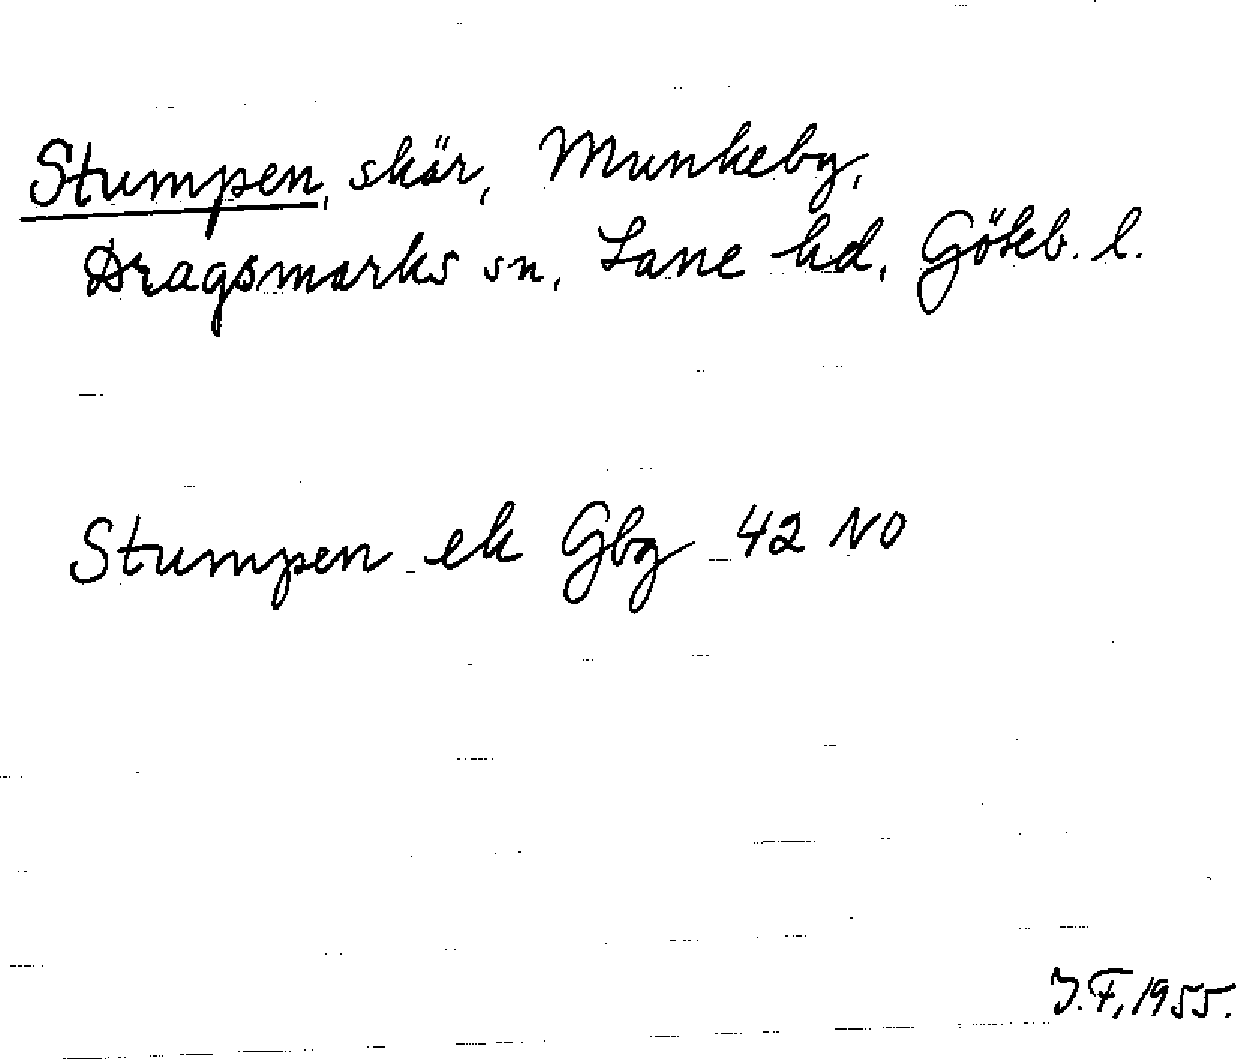 Stumpen, skär, Munkeby,
Dragsmarks sn, Lane hd, Göteb. l.
Stumpen ek Gbg 42 NO
J.F, 1955.